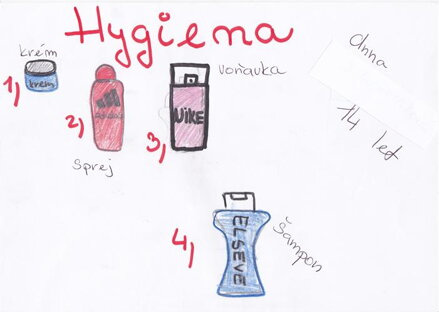 Hygiena
krém
1,
krem
2,
adidas
sprej
3,
NIKE
voňavka
Anna
14 let
4,
ELSEVE
šampon